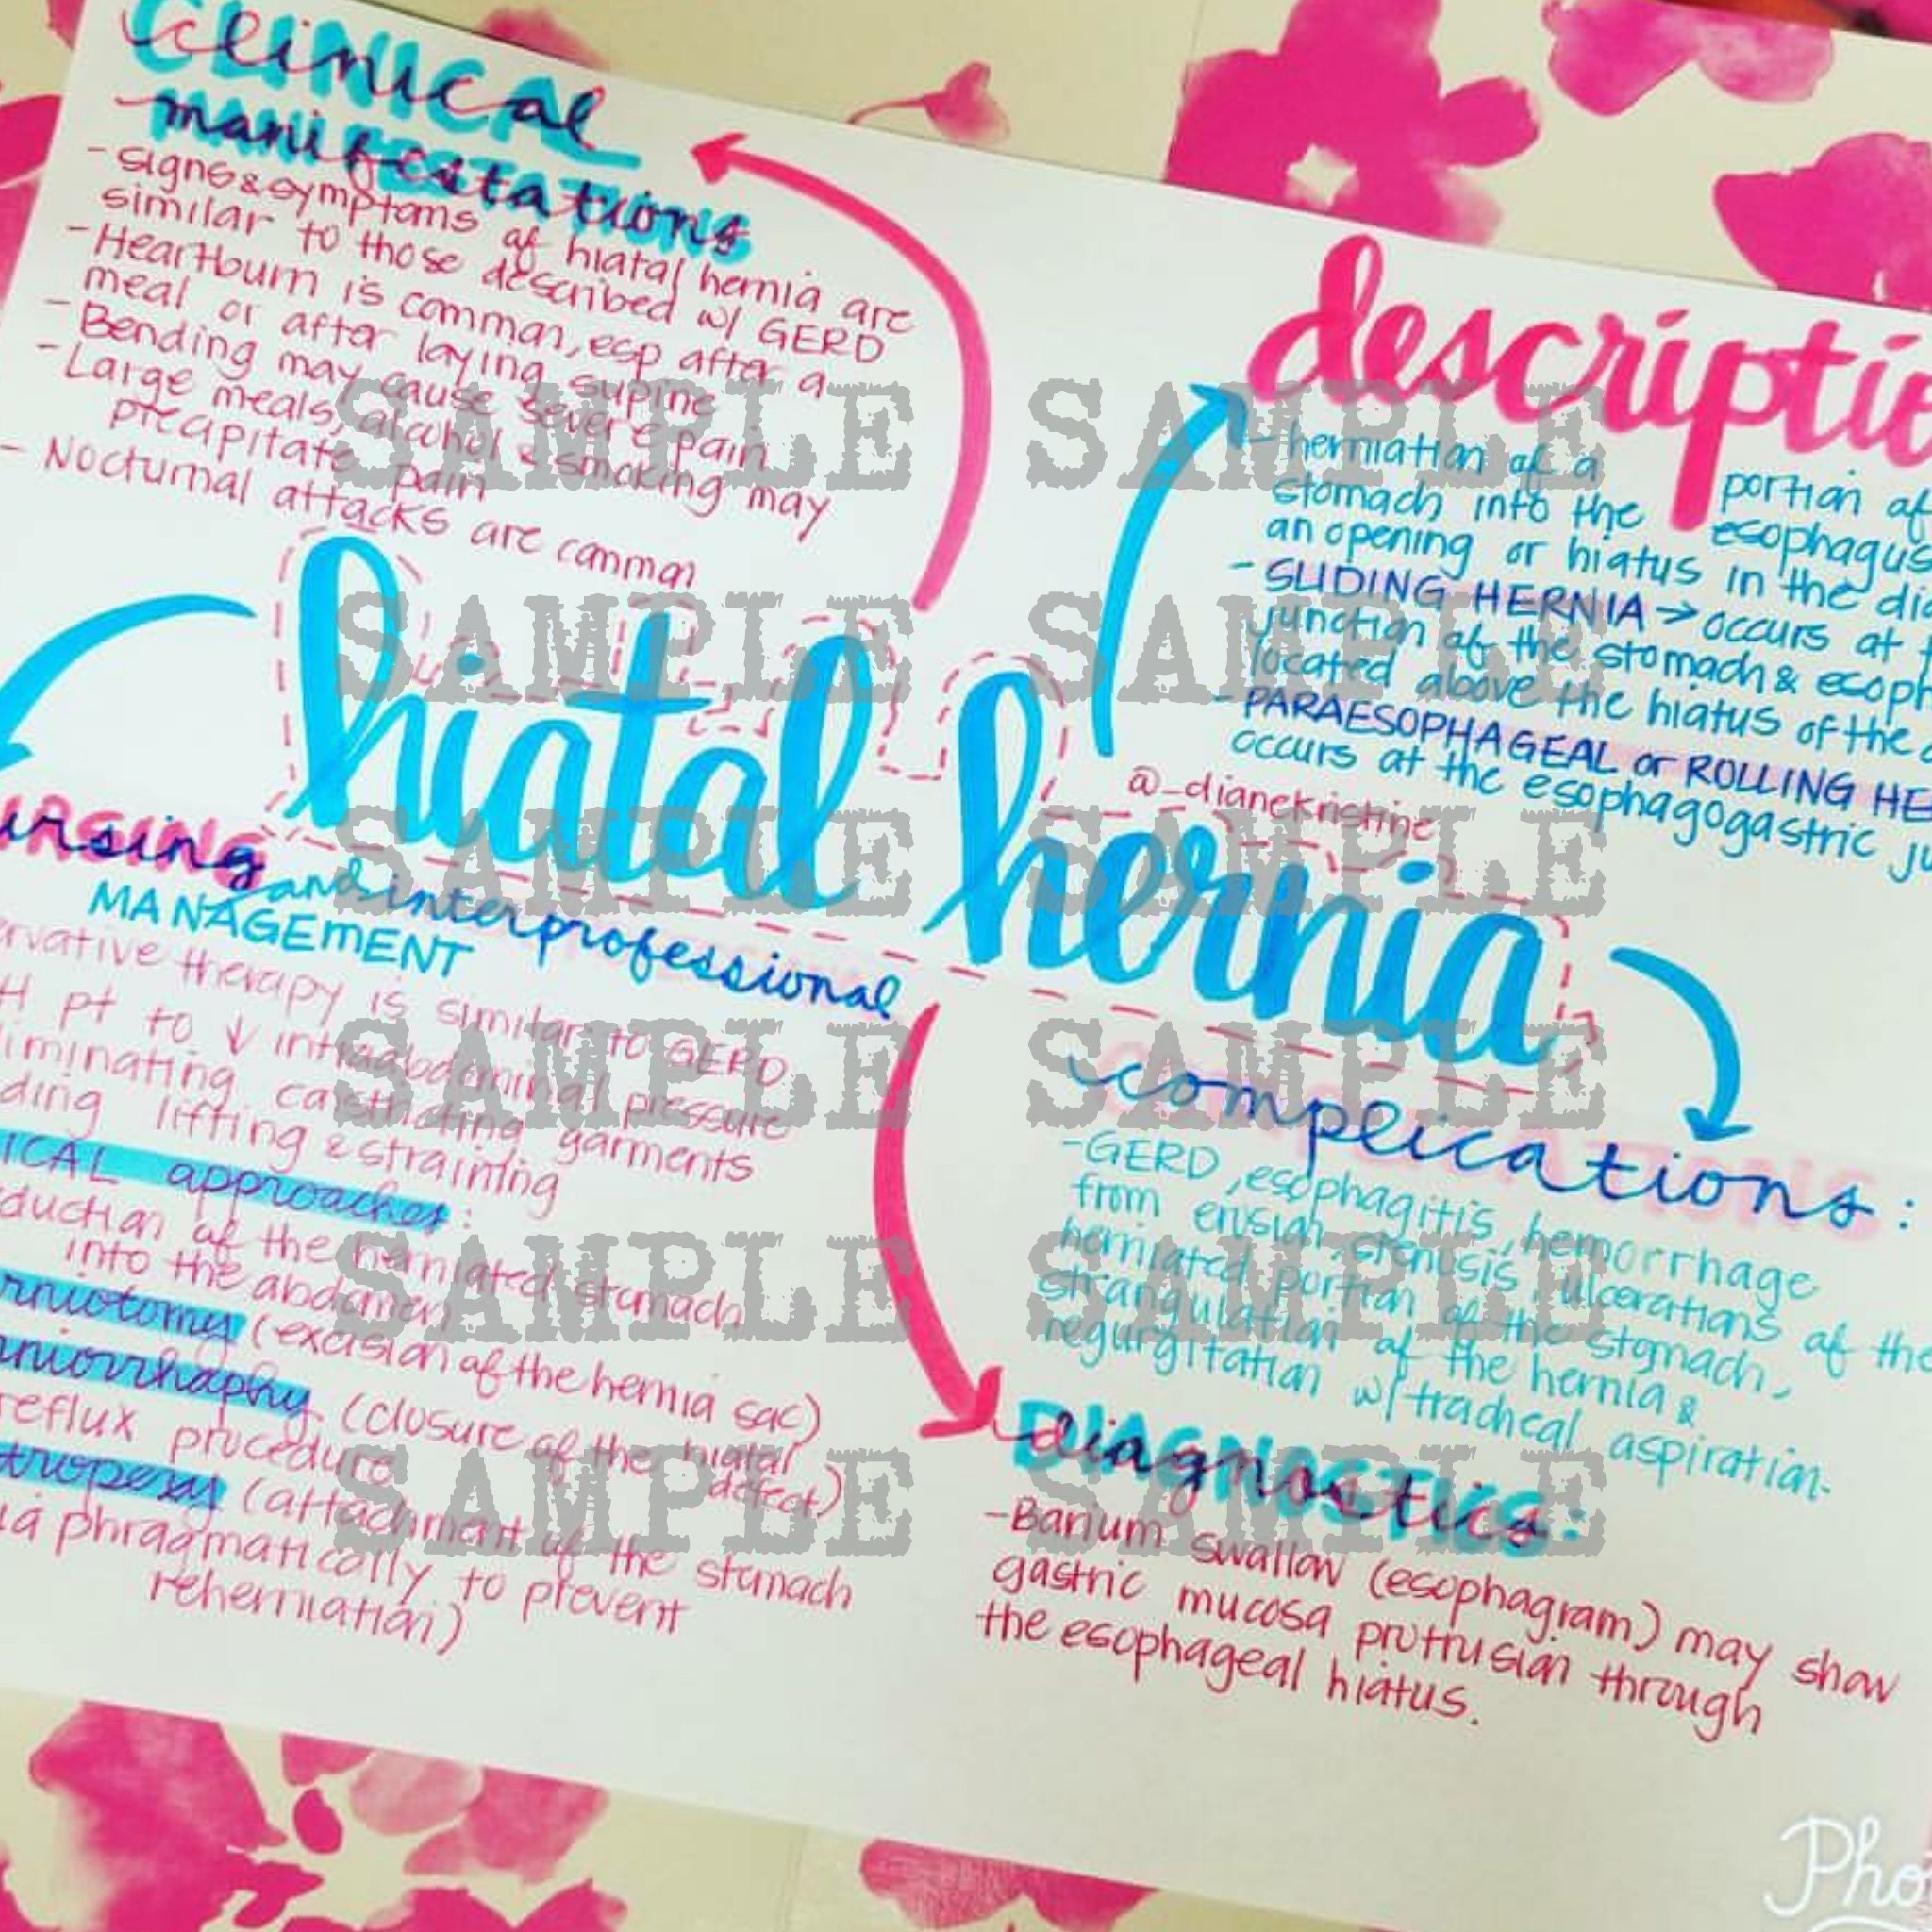 clinical
manifestations
- signs & symptoms of hiatal hernia are
similar to those described w/ GERD
- Heartburn is common, esp after a
meal or after laying supine
- Bending may cause severe pain
- Large meals, alcohol & smoking may
precipitate pain
- Nocturnal attacks are common
descriptio
- herniation of a portion of
stomach into the esophagus
an opening or hiatus in the di
- SLIDING HERNIA → occurs at t
junction of the stomach & esoph
located above the hiatus of the d
- PARAESOPHAGEAL or ROLLING HE
occurs at the esophagogastric ju
hiatal hernia
@_dianekristine
ursing and interprofessional
MANAGEMENT
ervative therapy is similar to GERD
H pt to ↓ intraabdominal pressure
iminating constricting garments
ding lifting & straining
ICAL approaches:
duction of the herniated stomach
into the abdomen
rniotomy (excision of the hernia sac)
niorrhaphy (closure of the hiatal
defect)
reflux procedure
tropexy (attachment of the stomach
ia phragmatically to prevent
reherniation)
complications:
- GERD, esophagitis, hemorrhage
from erosion, stenosis, ulcerations of the
herniated portion of the stomach,
strangulation of the hernia &
regurgitation w/ tracheal aspiration.
diagnostics:
- Barium swallow (esophagram) may show
gastric mucosa protrusion through
the esophageal hiatus.
SAMPLE SAMPLE
SAMPLE SAMPLE
SAMPLE SAMPLE
SAMPLE SAMPLE
SAMPLE SAMPLE
SAMPLE SAMPLE
Pho